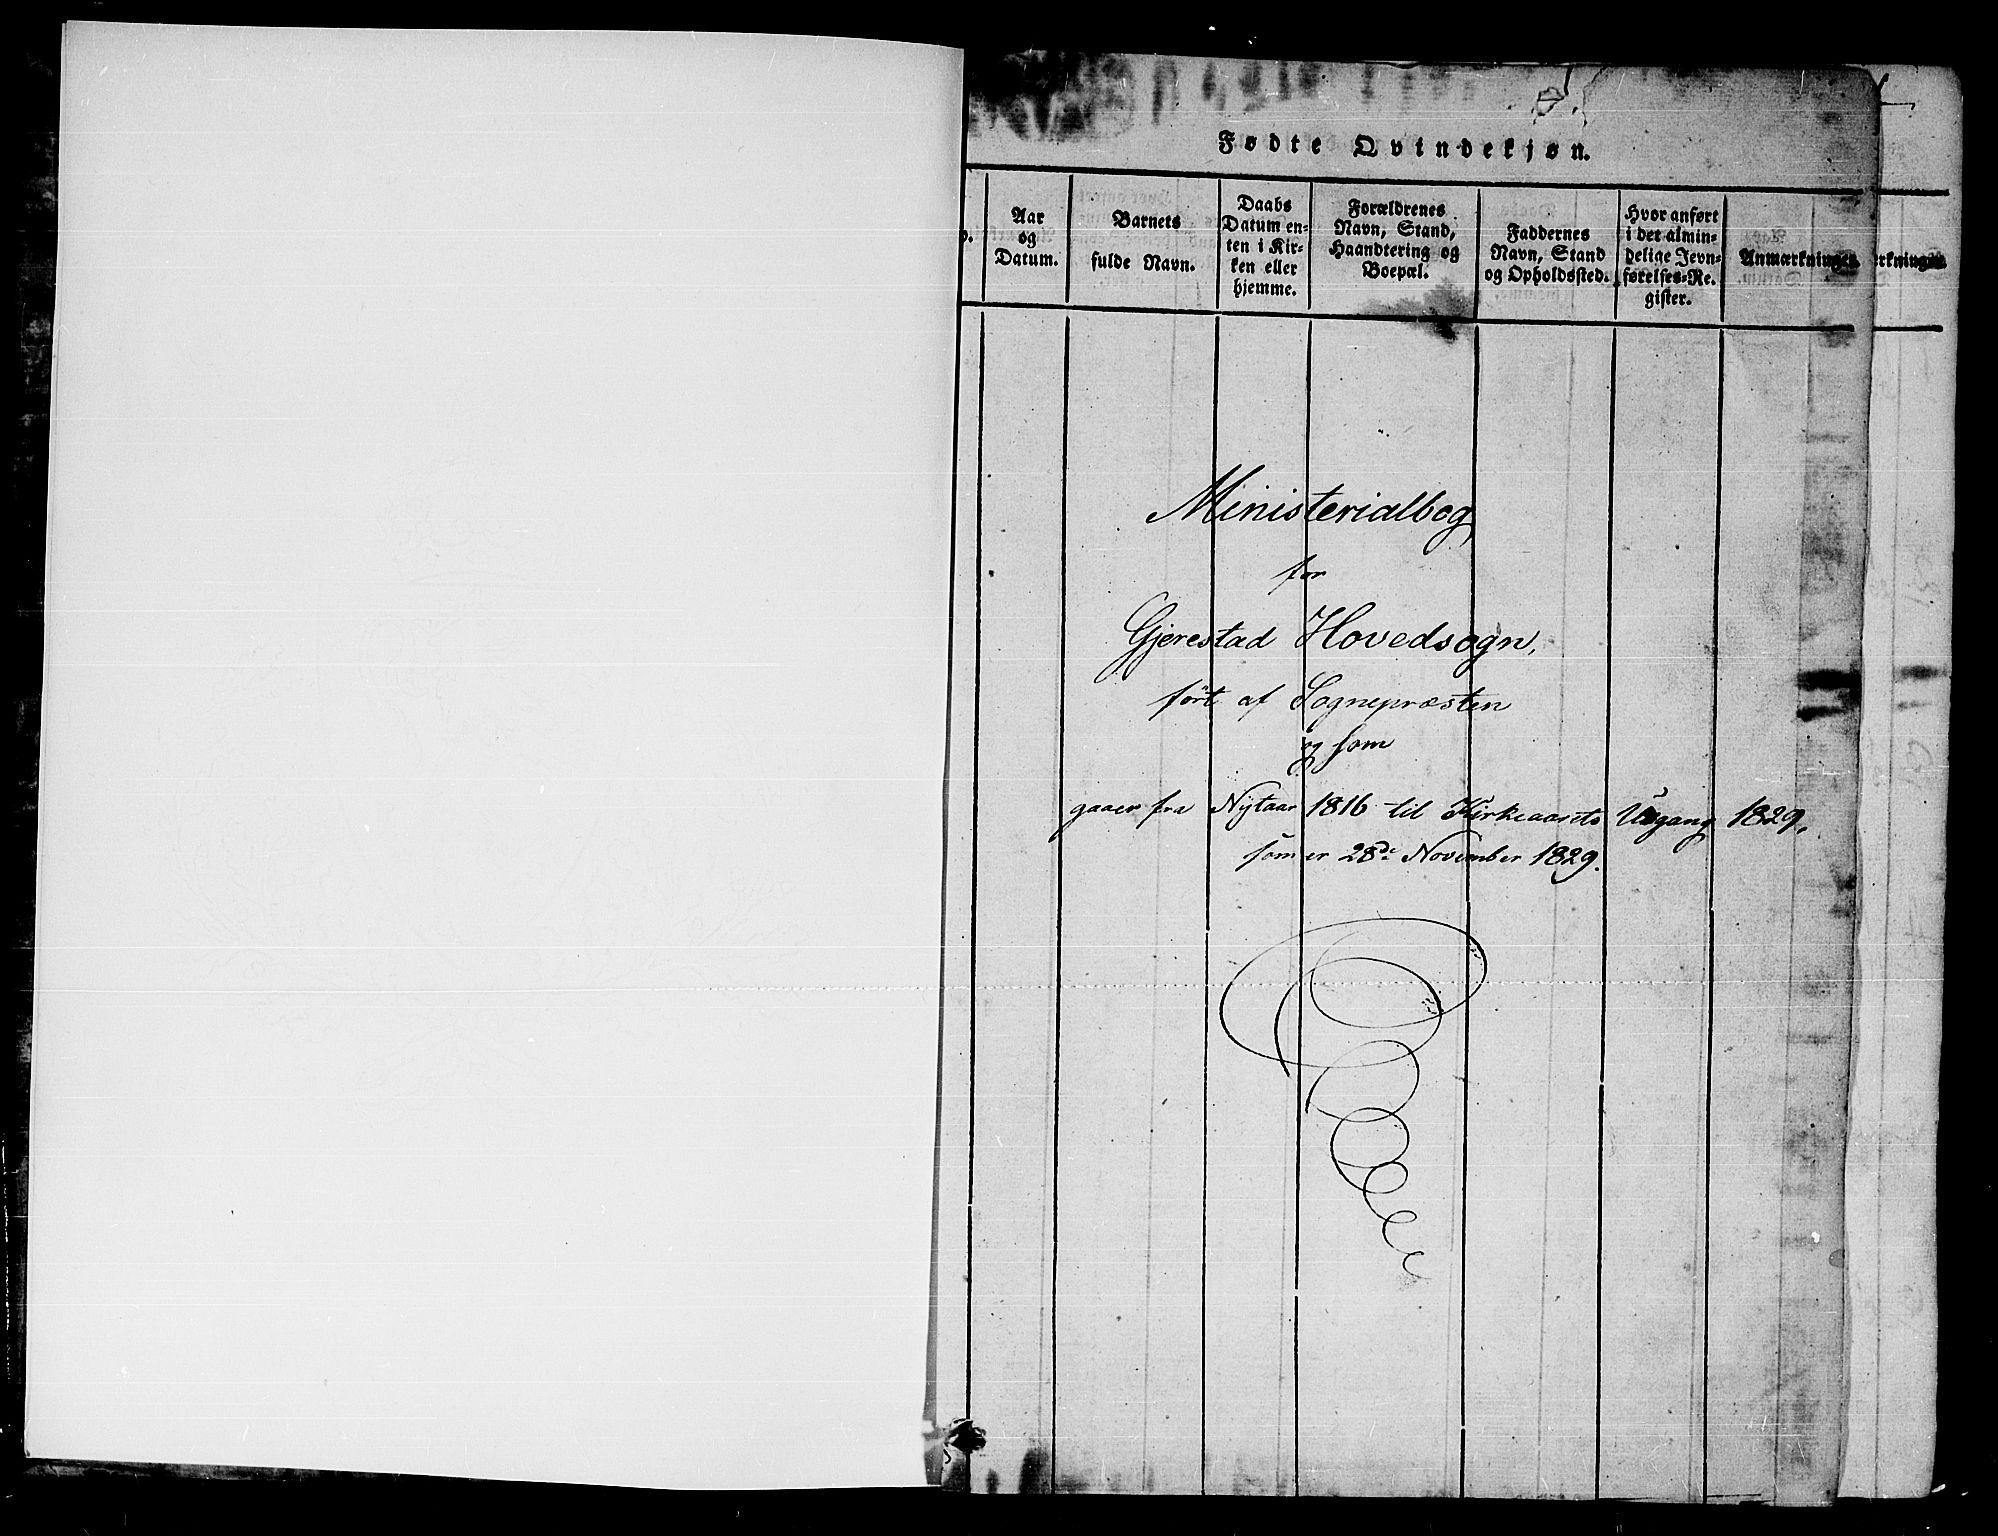 Fødte Qvindekjøn.
Aar
og
Datum.
Barnets
fulde Navn.
Daabs
Datum en-
ten i Kir-
ken eller
hjemme.
Forældrenes
Navn, Stand,
Haandtering og
Boepæl.
Faddernes
Navn, Stand
og Opholdssted.
Hvor anført
i det almin-
delige Jevn-
førelses-Re-
gister.
Anmærkninger.
Ministerialbog
for
Gjerestad Hovedsogn,
ført af Sognepræsten
og som
gaaer fra Nytaar 1816 til Kirkeaarets Udgang 1829,
som er 28de November 1829.